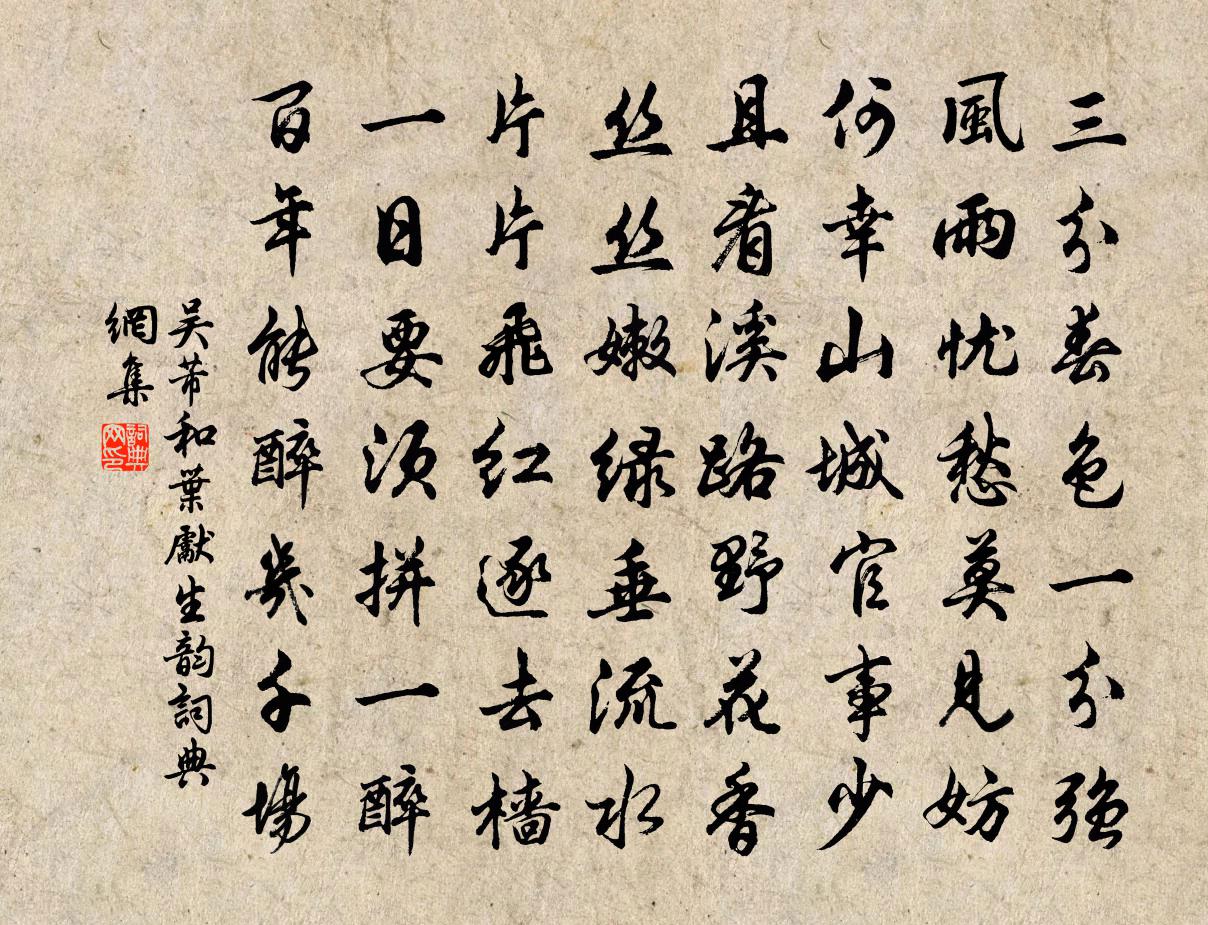 三分春色一分強
風雨忧愁莫見妨
何幸山城官事少
且看溪路野花香
丝丝嫩绿垂流水
片片飛红逐去檣
一日要须拼一醉
百年能醉幾千場
吴芾和葉獻生韵詞典
網集
詞典
网印